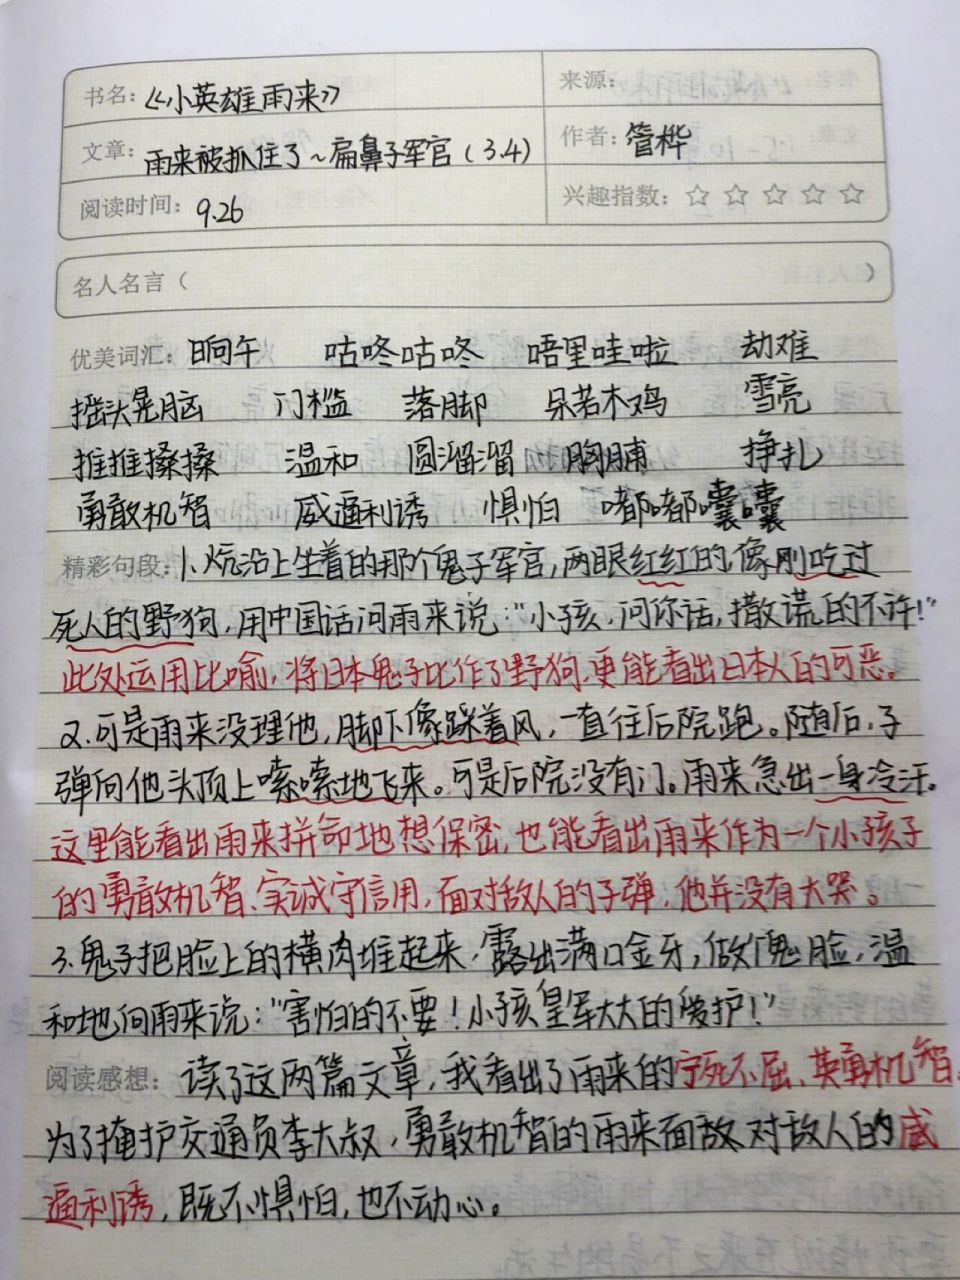 书名：《小英雄雨来》
来源：
文章：雨来被抓住了~扁鼻子军官（3.4）
作者：管桦
阅读时间：9.26
兴趣指数：☆ ☆ ☆ ☆ ☆
名人名言（ ）
优美词汇：晌午 咕咚咕咚 唔里哇啦 劫难
摇头晃脑 门槛 落脚 呆若木鸡 雪亮
推推搡搡 温和 圆溜溜 胸脯 挣扎
勇敢机智 威逼利诱 惧怕 嘟嘟囔囔
精彩句段：1、炕沿上坐着的那个鬼子军官，两眼红红的像刚吃过
死人的野狗，用中国话问雨来说：“小孩，问你话，撒谎的不许！”
此处运用比喻，将日本鬼子比作了野狗，更能看出日本人的可恶。
2.可是雨来没理他，脚下像踩着风，一直往后院跑。随后，子
弹向他头顶上嗦嗦地飞来。可是后院没有门。雨来急出一身冷汗。
这里能看出雨来拼命地想保密，也能看出雨来作为一个小孩子
的勇敢机智、实诚守信用，面对敌人的子弹，他并没有大哭。
3.鬼子把脸上的横肉堆起来，露出满口金牙，做个鬼脸，温
和地向雨来说：“害怕的不要！小孩皇军大大的爱护！”
阅读感想：读了这两篇文章，我看出了雨来的宁死不屈、英勇机智。
为了掩护交通员李大叔，勇敢机智的雨来面敌对敌人的威
逼利诱，既不惧怕，也不动心。